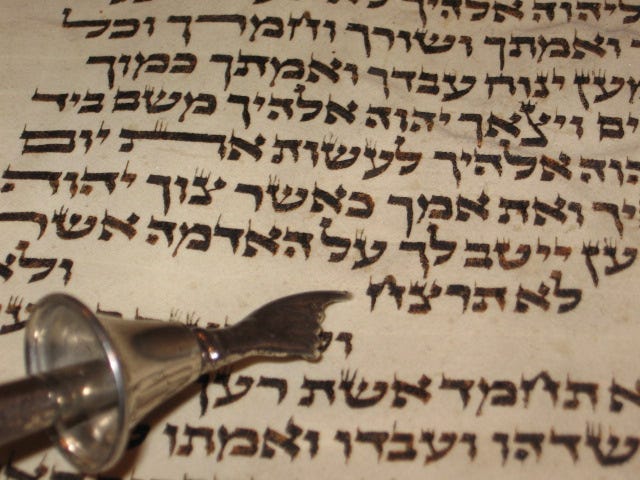 ליהוה אלהיך
ואמתך ושורך וחמרך וכל
מען ינוח עבדך ואמתך כמוך
ים ויצאך יהוה אלהיך משם ביד
הוה אלהיך לעשות את יום
יך ואת אמך כאשר צוך יהוה
ען ייטב לך על האדמה אשר
לא תרצח ולא
א תחמד אשת רעך
שדהו ועבדו ואמתו